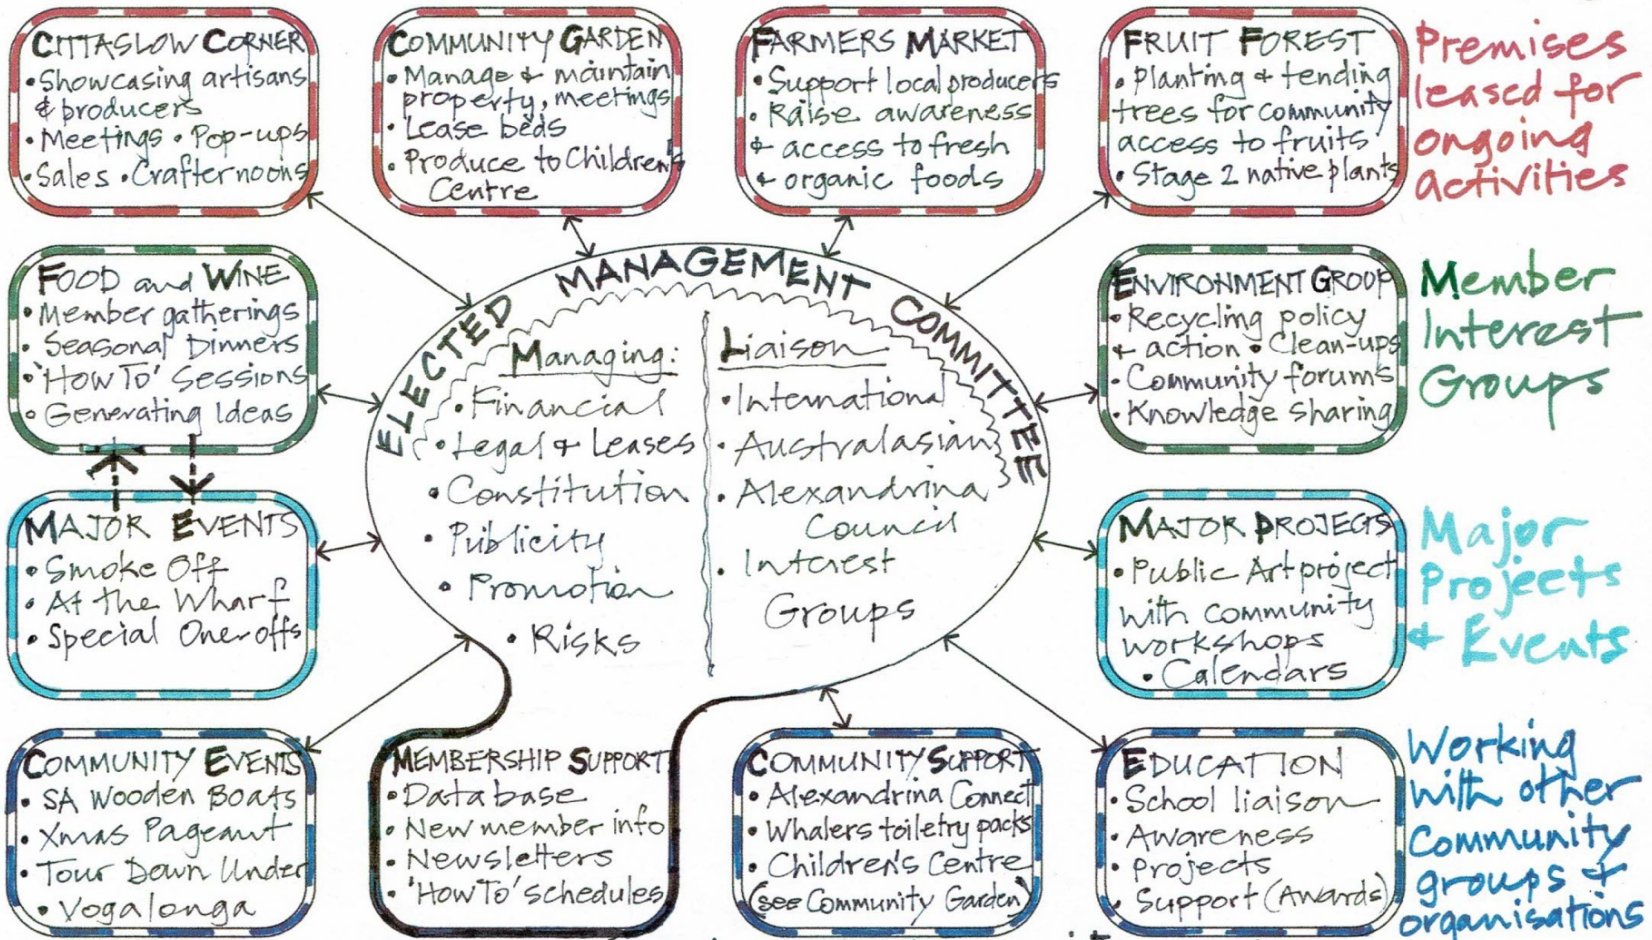 CITTASLOW CORNER
• Showcasing artisans
& producers
• Meetings • Pop-ups
• Sales • Crafternoons
COMMUNITY GARDEN
• Manage & maintain
property, meetings
• Lease beds
• Produce to Children's
Centre
FARMERS MARKET
• Support local producers
• Raise awareness
& access to fresh
& organic foods
FRUIT FOREST
• Planting & tending
trees for community
access to fruits
• Stage 2 native plants
Premises
leased for
ongoing
activities
FOOD and WINE
• Member gatherings
• Seasonal Dinners
• 'How To' Sessions
• Generating Ideas
ELECTED MANAGEMENT COMMITTEE
Managing:
• Financial
• Legal & Leases
• Constitution
• Publicity
• Promotion
• Risks
Liaison
• International
• Australasian
• Alexandrina
Council
• Interest
Groups
ENVIRONMENT GROUP
• Recycling policy
& action • Clean-ups
• Community forums
• Knowledge Sharing
Member
Interest
Groups
MAJOR EVENTS
• Smoke Off
• At the Wharf
• Special One-offs
MAJOR PROJECTS
• Public Art project
with community
workshops
• Calendars
Major
Projects
& Events
COMMUNITY EVENTS
• SA Wooden Boats
• Xmas Pageant
• Tour Down Under
• Vogalonga
MEMBERSHIP SUPPORT
• Database
• New member info
• Newsletters
• 'How To' schedules
COMMUNITY SUPPORT
• Alexandrina Connect
• Whalers toiletry packs
• Children's Centre
(see Community Garden)
EDUCATION
• School liaison
• Awareness
• Projects
• Support (Awards)
Working
with other
Community
groups &
organisations